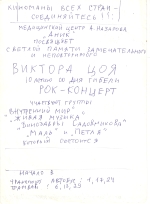 КИНОМАНЫ ВСЕХ СТРАН -
СОЕДИНЯЙТЕСЬ!!!
МЕДИЦИНСКИЙ ЦЕНТР
ПОСВЯЩАЕТ
СВЕТЛОЙ ПАМЯТИ ЗАМЕЧАТЕЛЬНОГО
И НЕПОВТОРИМОГО
ВИКТОРА ЦОЯ
СО ДНЯ ГИБЕЛИ
РОК-КОНЦЕРТ
УЧАСТВУЮТ ГРУППЫ
"ВНУТРЕННИЙ МИР",
"ЖИВАЯ МУЗЫКА",
"ДИНОЗАВРЫ САДОВНИКОВА"
И "ПЕТЛЯ"
КОТОРЫЙ СОСТОИТСЯ
НАЧАЛО В
ТРАНСПОРТ АВТОБУС:
ТРАМВАЙ: